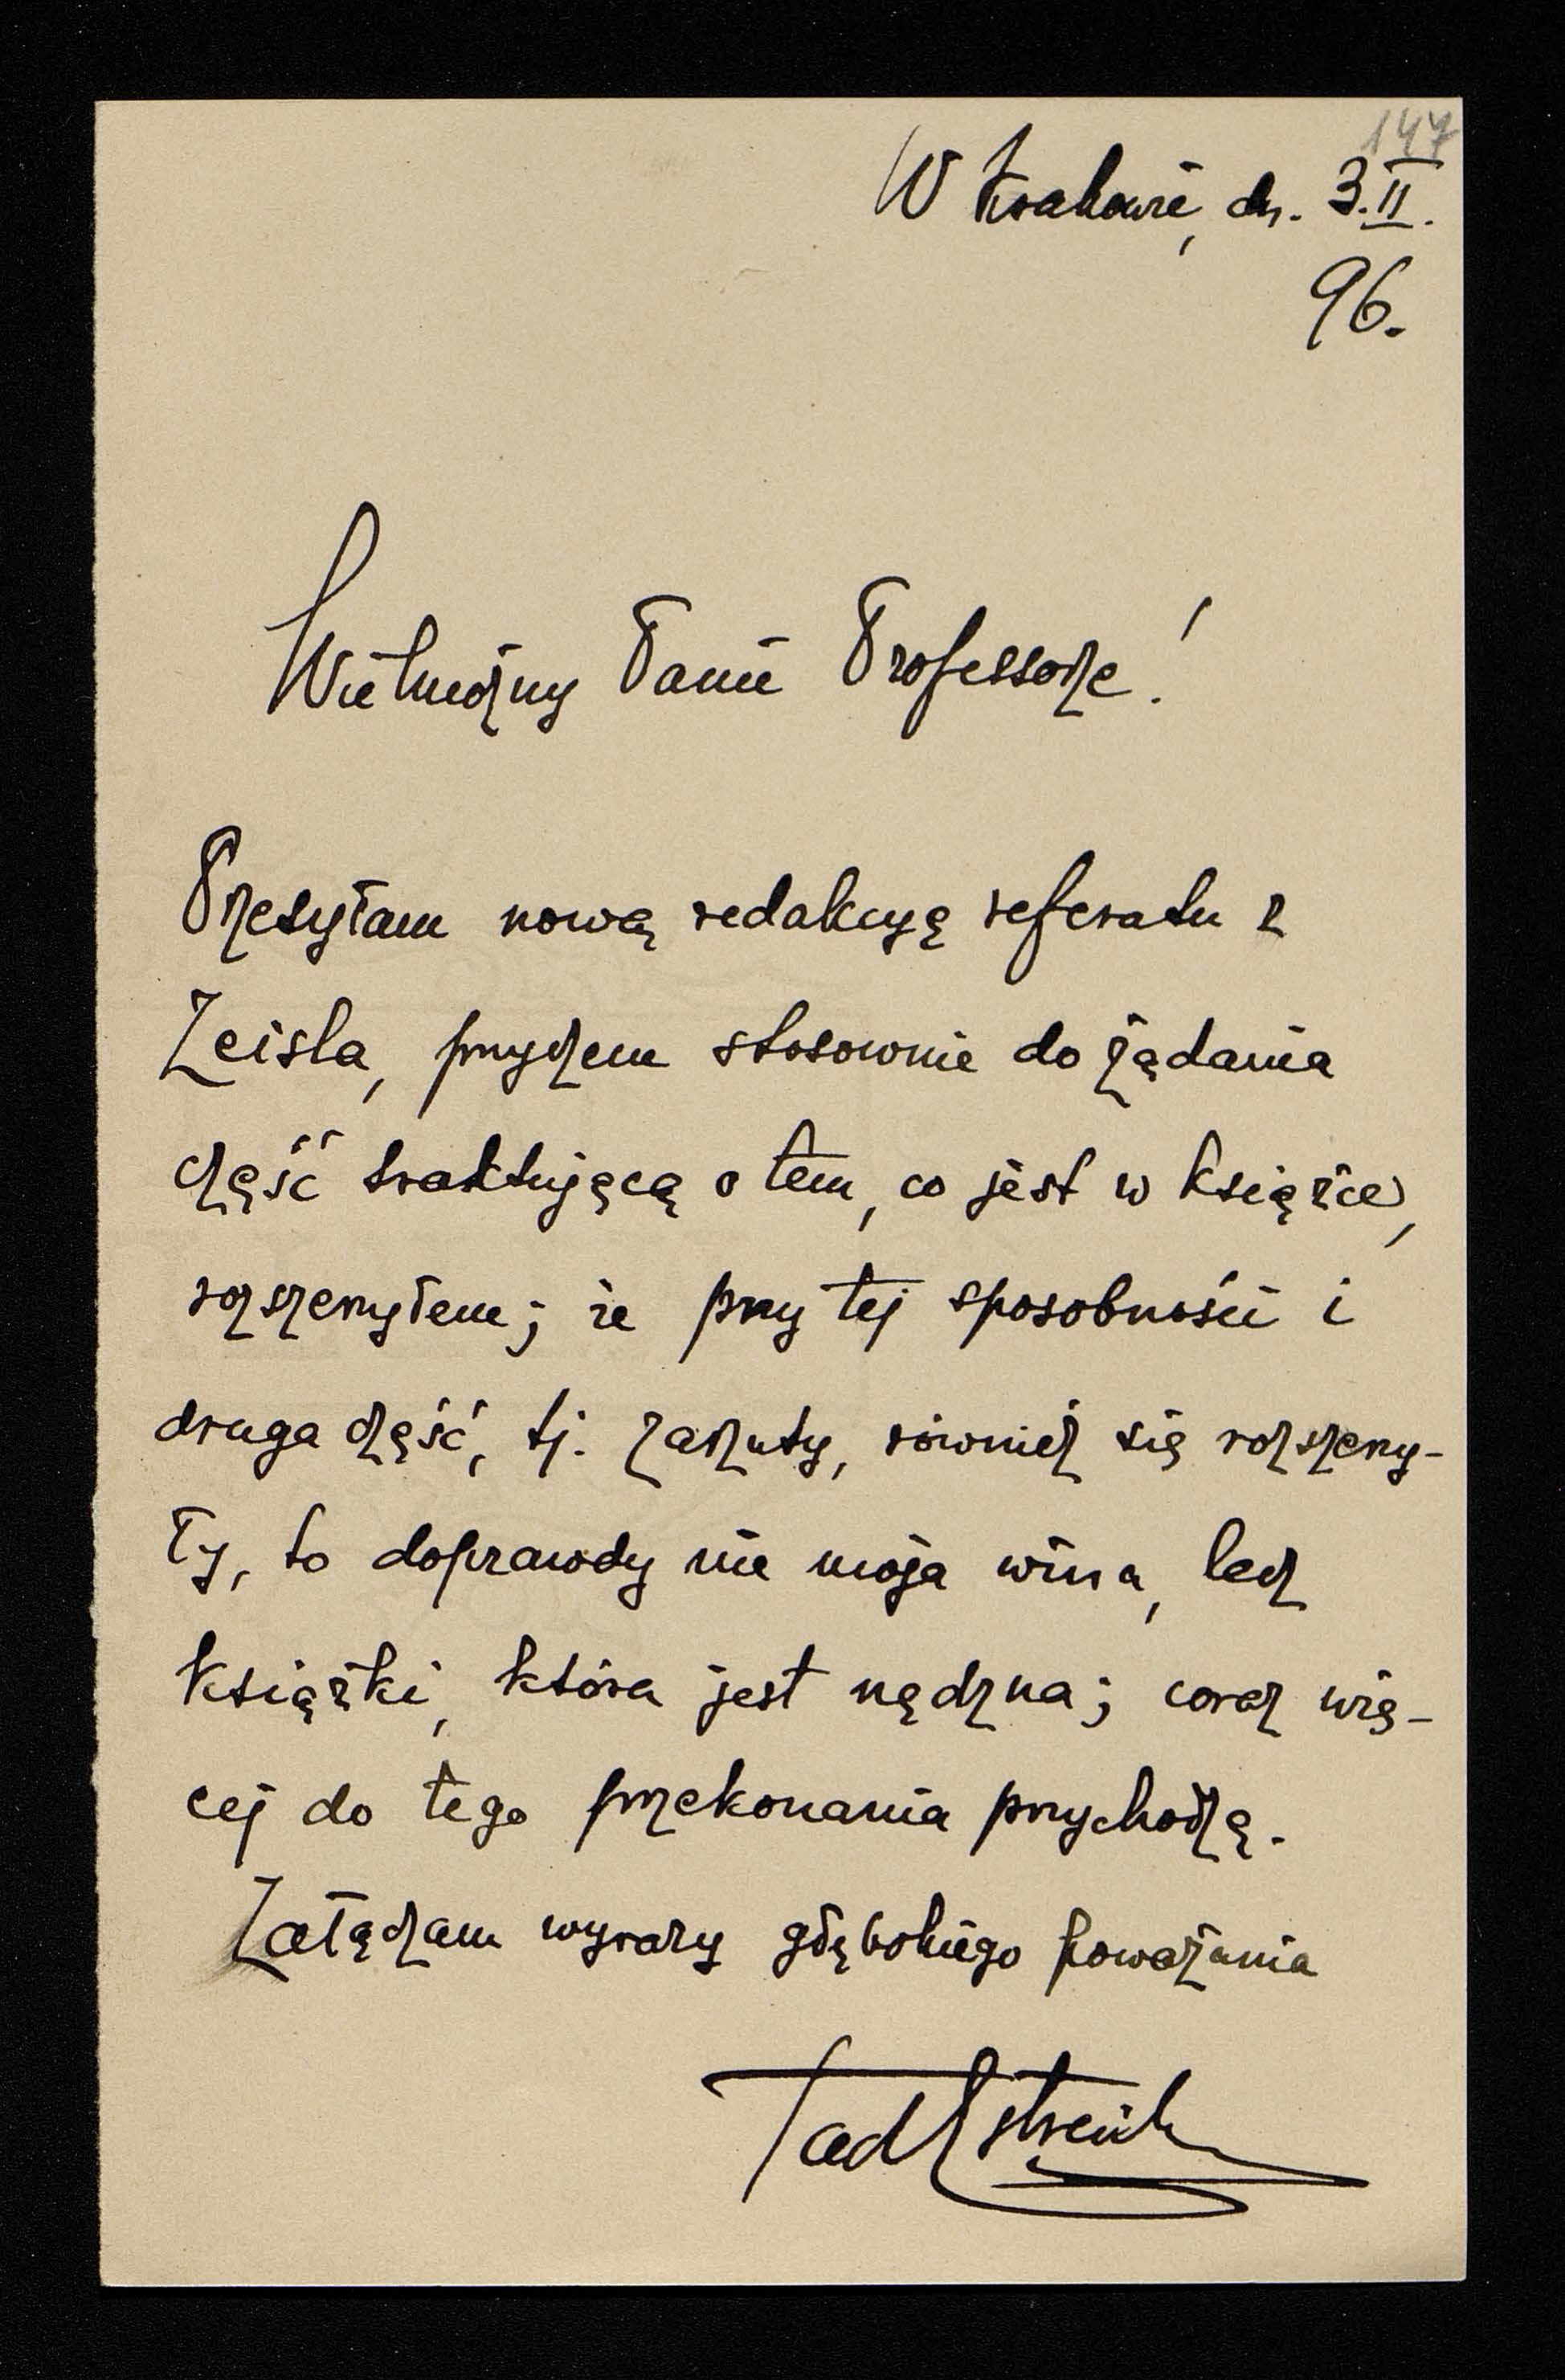 147
W Krakowie, dn. 3.II.
96.
Wielmożny Panie Professorze!
Przesyłam nową redakcyę referatu z
Zeisla, przyczem stosownie do żądania
część traktującą o tem, co jest w książce,
rozszerzyłem; że przy tej sposobności i
druga część, tj. zarzuty, również się rozszerzy-
ły, to doprawdy nie moja wina, lecz
książki, która jest nędzna; coraz wię-
cej do tego przekonania przychodzę.
Załączam wyrazy głębokiego poważania
Tad Estreich